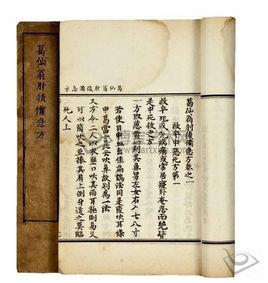 葛仙翁肘後備急方卷之一
救卒中惡死方第一
救卒死或先病痛或常居寢卧奄忽而絕皆
是中死救之方
一方取葱黃心刺其鼻男左女右入七八寸
若使目中血出佳扁鵲法同是後吹耳條
中葛當言此云吹鼻故別為一法
又方令二人以衣壅口吹其兩耳極則易又
可以筒吹之并捧其肩上側身遠之莫臨
死人上
葛仙翁肘後備急方